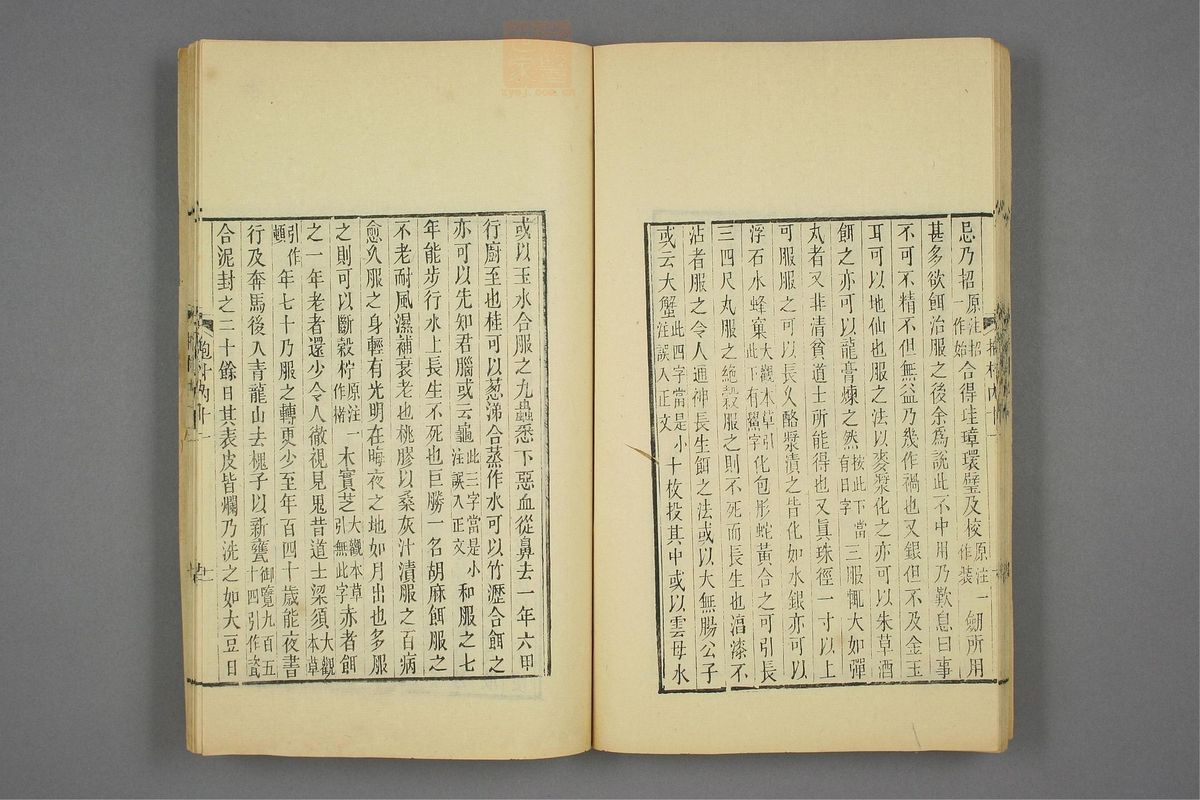 忌乃招原注招一作始合得珪璋環璧及校原注一作裝劒所用
甚多欲餌治服之後余爲說此不中用乃歎息曰事
不可不精不但無益乃幾作禍也又銀但不及金玉
耳可以地仙也服之法以麥漿化之亦可以朱草酒
餌之亦可以龍膏煉之然按此下當有日字三服輒大如彈
丸者又非清貧道士所能得也又眞珠徑一寸以上
可服服之可以長久酪漿漬之皆化如水銀亦可以
浮石水蜂窠大觀本草引此下有鱉字化包彤蛇黃合之可引長
三四尺丸服之絶穀服之則不死而長生也淳漆不
沾者服之令人通神長生餌之法或以大無腸公子
或云大蟹此四字當是小注誤入正文十枚投其中或以雲母水
或以玉水合服之九蟲悉下惡血從鼻去一年六甲
行廚至也桂可以葱涕合蒸作水可以竹瀝合餌之
亦可以先知君腦或云龜此三字當是小注誤入正文和服之七
年能步行水上長生不死也巨勝一名胡麻餌服之
不老耐風濕補衰老也桃膠以桑灰汁漬服之百病
愈久服之身輕有光明在晦夜之地如月出也多服
之則可以斷穀柠原注一作楮木實芝大觀本草引無此字赤者餌
之一年老者還少令人徹視見鬼昔道士梁須大觀本草
引作頓年七十乃服之轉更少至年百四十歲能夜書
行及奔馬後入青龍山去槐子以新甕御覽九百五十四引作瓷
合泥封之二十餘日其表皮皆爛乃洗之如大豆日
抱朴内十一